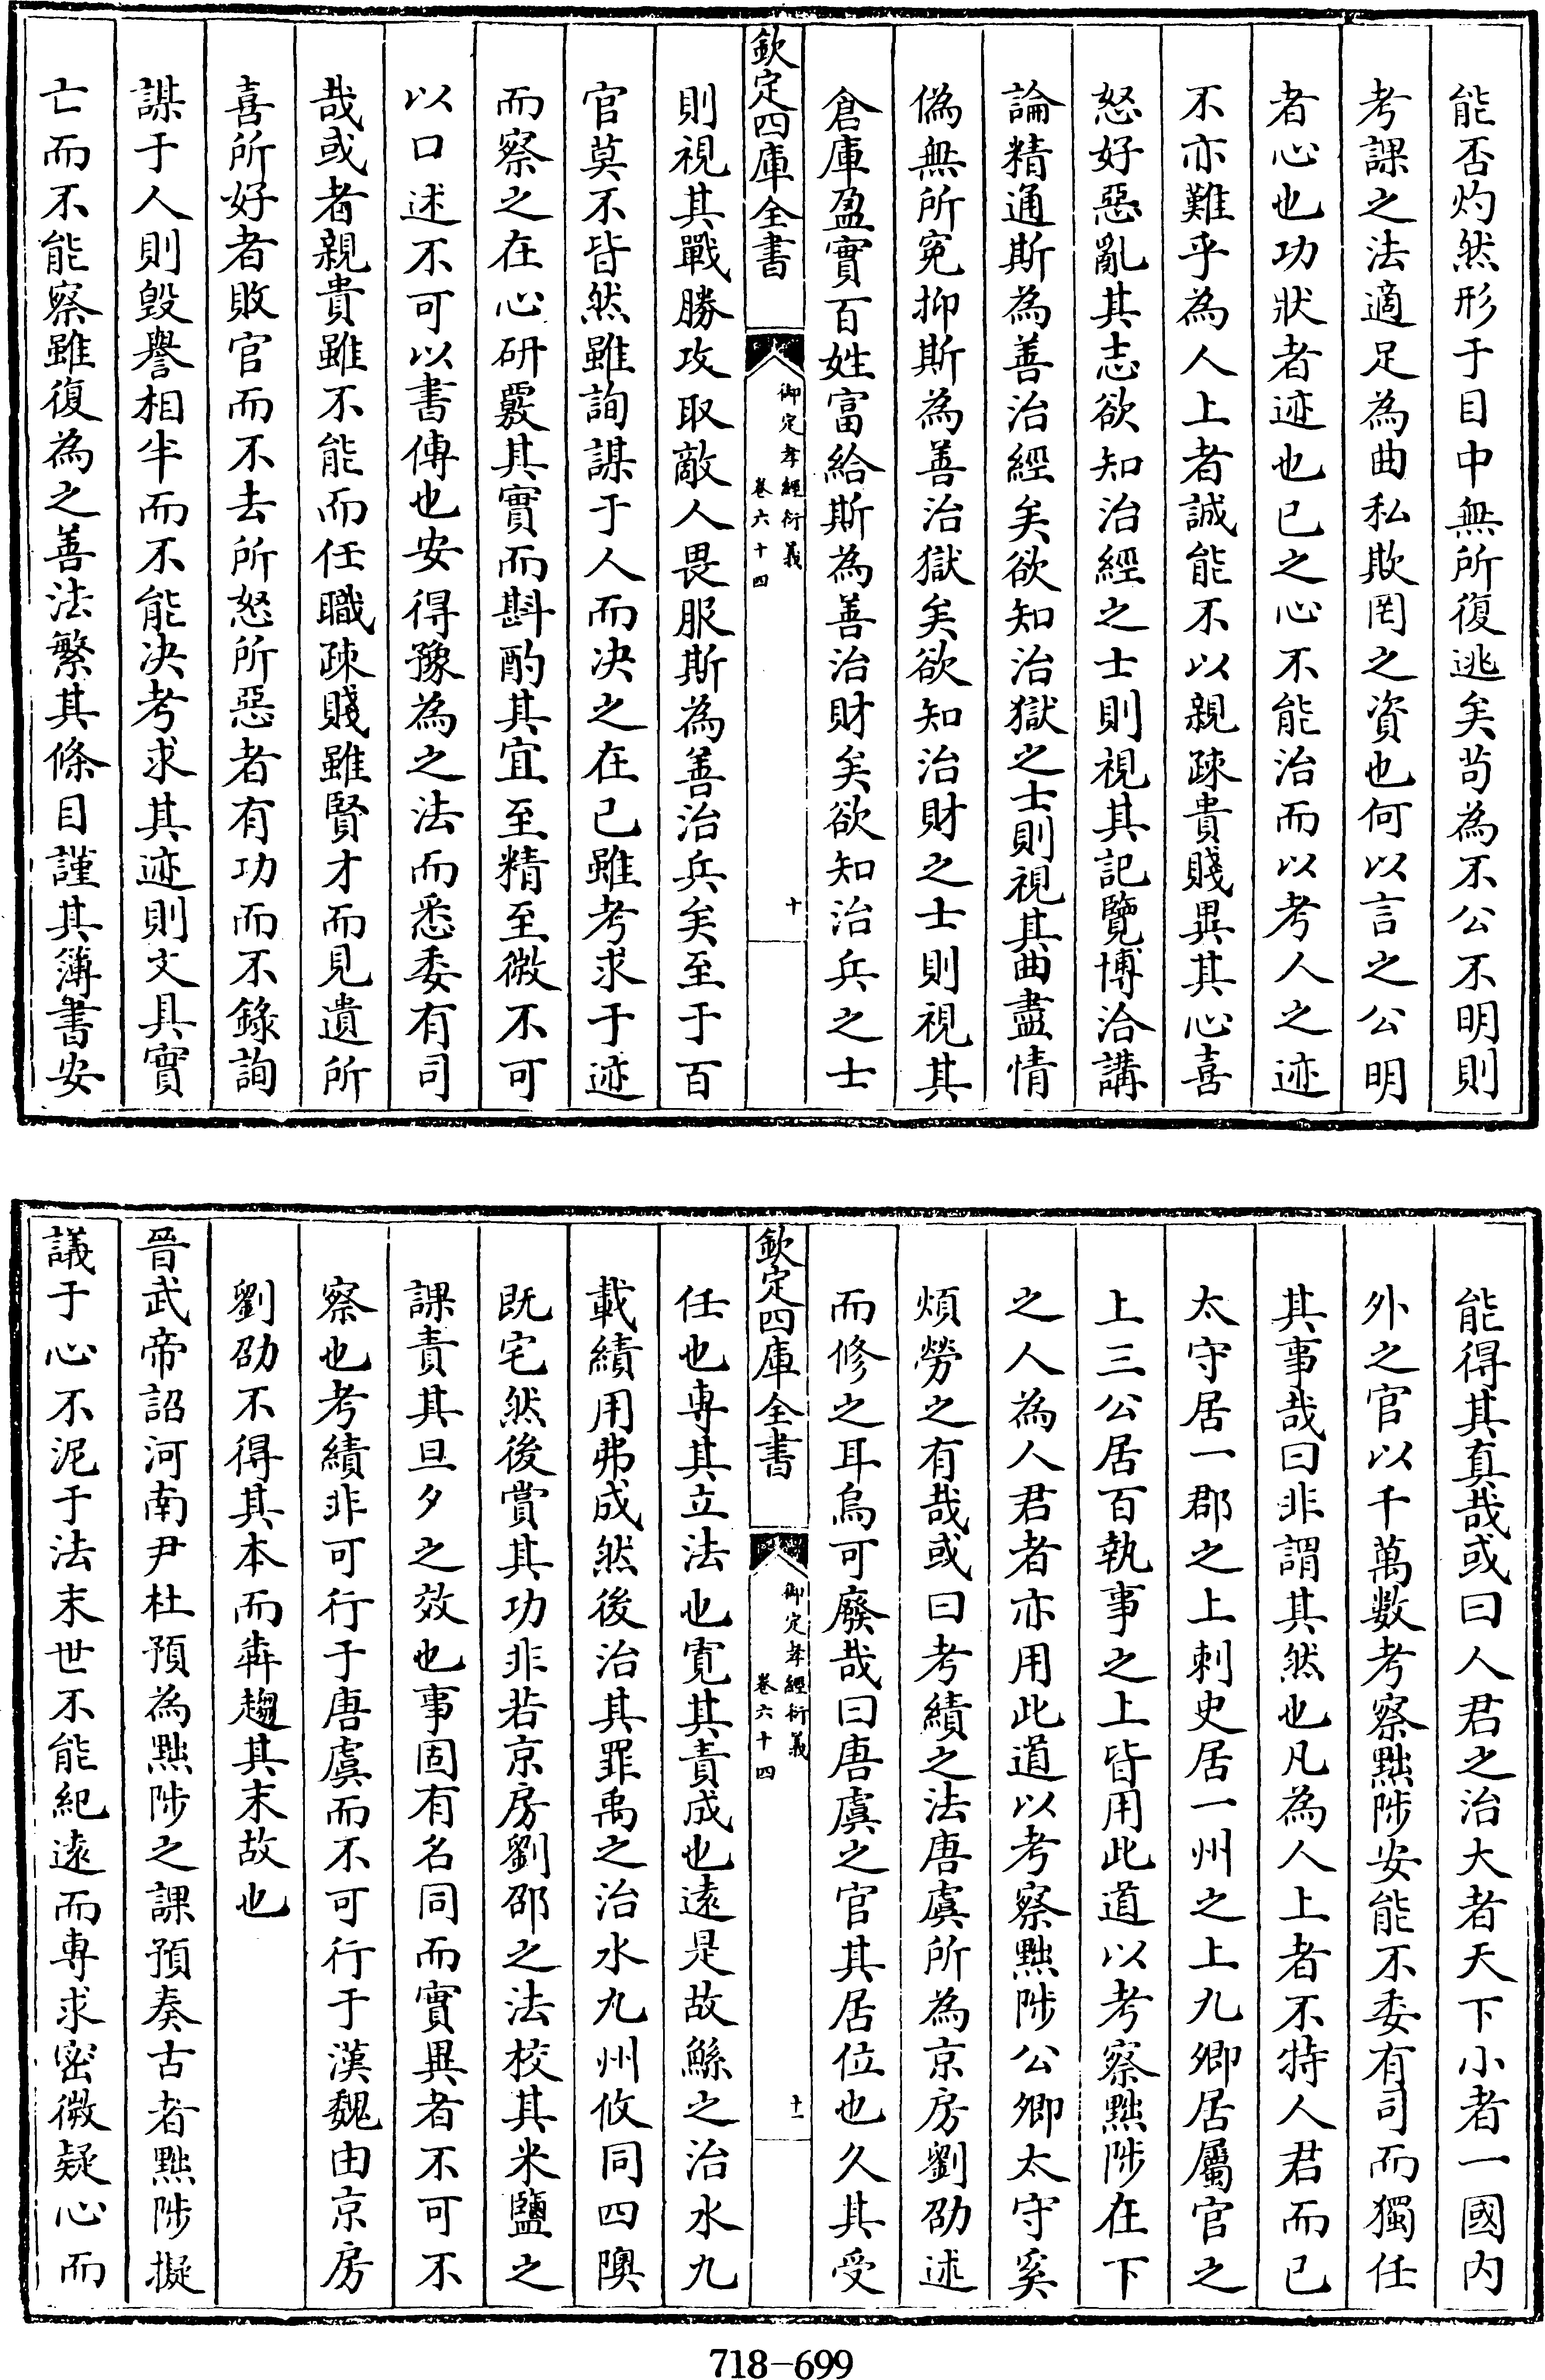 能否灼然形于目中無所復逃矣苟為不公不明則
考課之法適足為曲私欺罔之資也何以言之公明
者心也功狀者迹也已之心不能治而以考人之迹
不亦難乎為人上者誠能不以親疎貴賤異其心喜
怒好惡亂其志欲知治經之士則視其記覽博洽講
論精通斯為善治經矣欲知治獄之士則視其曲盡情
偽無所冤抑斯為善治獄矣欲知治財之士則視其
倉庫盈實百姓富給斯為善治財矣欲知治兵之士
欽定四庫全書
御定孝經衍義
卷六十四
十
則視其戰勝攻取敵人畏服斯為善治兵矣至于百
官莫不皆然雖詢謀于人而决之在已雖考求于迹
而察之在心研覈其實而斟酌其宜至精至微不可
以口述不可以書傳也安得豫為之法而悉委有司
哉或者親貴雖不能而任職疎賤雖賢才而見遺所
喜所好者敗官而不去所怒所惡者有功而不錄詢
謀于人則毀譽相半而不能决考求其迹則文具實
亡而不能察雖復為之善法繁其條目謹其簿書安
能得其真哉或曰人君之治大者天下小者一國内
外之官以千萬數考察黜陟安能不委有司而獨任
其事哉曰非謂其然也凡為人上者不特人君而已
太守居一郡之上刺史居一州之上九卿居屬官之
上三公居百執事之上皆用此道以考察黜陟在下
之人為人君者亦用此道以考察黜陟公卿太守奚
煩勞之有哉或曰考績之法唐虞所為京房劉劭述
而修之耳烏可廢哉曰唐虞之官其居位也久其受
欽定四庫全書
御定孝經衍義
卷六十四
十一
任也専其立法也寛其責成也遠是故鯀之治水九
載績用弗成然後治其罪禹之治水九州攸同四隩
既宅然後賞其功非若京房劉邵之法校其米鹽之
課責其旦夕之效也事固有名同而實異者不可不
察也考績非可行于唐虞而不可行于漢魏由京房
劉劭不得其本而犇趨其末故也
晉武帝詔河南尹杜預為黜陟之課預奏古者黜陟擬
議于心不泥于法末世不能紀遠而専求密微疑心而
718-699